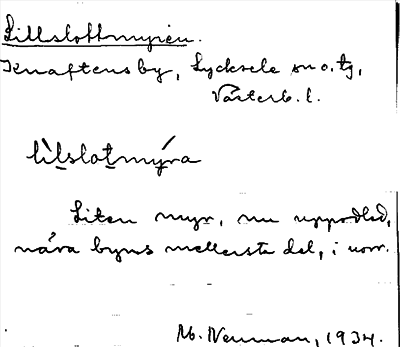 Lillslottmyren.
Knaftens by, Lycksele sn o. tg,
Västerb. l.
lìlslotmýra
Liten myr, nu uppodlad,
nära byns mellersta del, i norr.
M. Neuman, 1934.